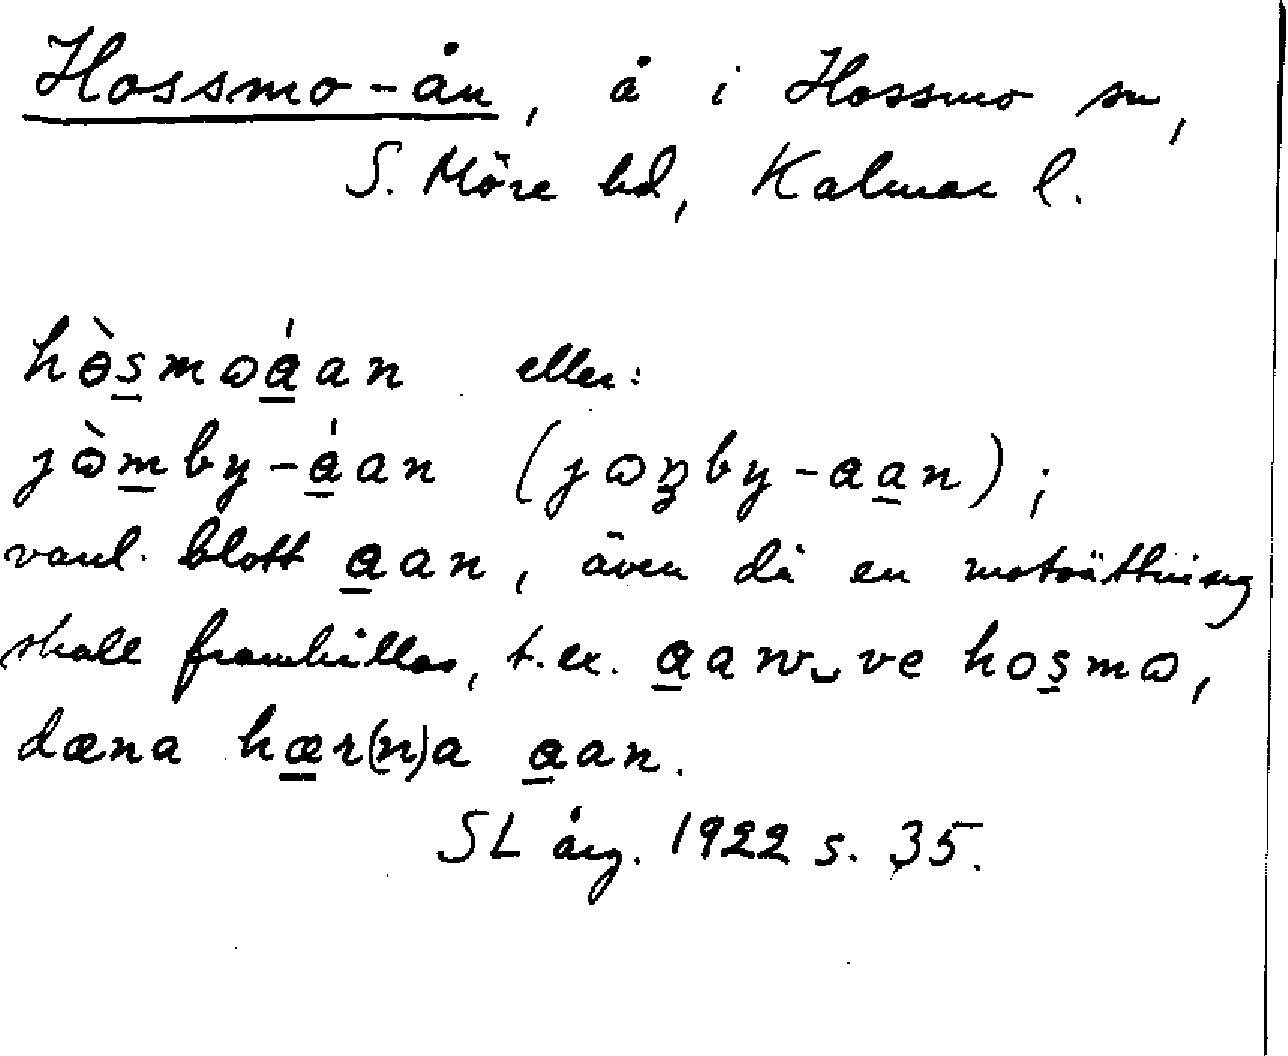 Hossmo-ån, å i Hossmo sn,
S. Möre hd, Kalmar l.
hɵ̀s̲mɷá̲an eller:
jɷ̀m̲by-á̲an (jɷn̲by-aa̲n);
vanl. blott a̲an, även då en motsättning
skall framhållas, t.ex. a̲an‿ve hos̲mɷ,
dæna hæ̲r(n)a a̲an.
SL årg. 1922 s. 35.